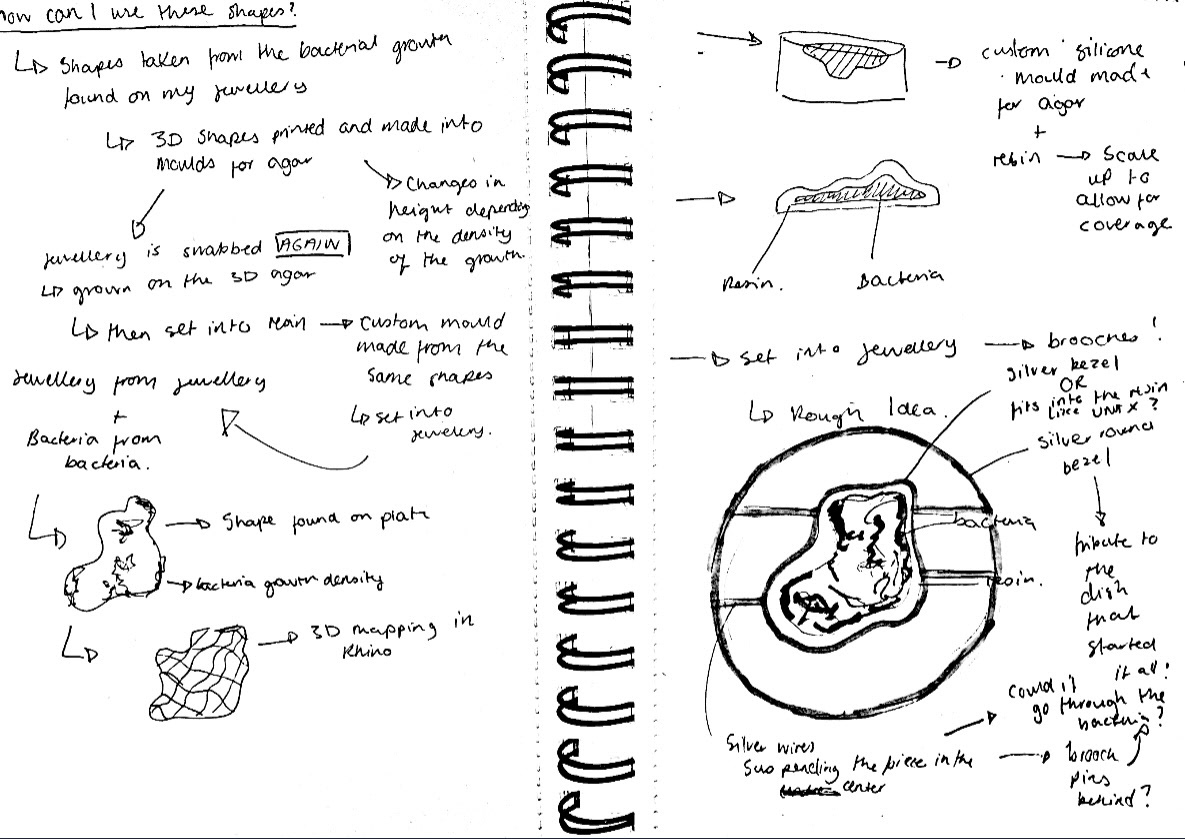 how can I use these shapes?
Shapes taken from the bacterial growth
found on my jewellery
3D shapes printed and made into
moulds for agar
Changes in
height depending
on the density
of the growth
Jewellery is swabbed AGAIN
grown on the 3D agar
then set into resin
Custom mould
made from the
same shapes
set into
jewellery.
Jewellery from jewellery
+
Bacteria from
bacteria.
Shape found on plate
bacteria growth density
3D mapping in
Rhino
custom silicone
mould made
for agar
+
resin
Scale
up to
allow for
coverage
Resin.
Bacteria
set into jewellery
brooches!
silver bezel
OR
fits into the resin
like
Rough Idea.
silver round
bezel
bacteria
resin.
tribute to
the
dish
that
started
it all!
Silver wires
suspending the piece in the
center
could it
go through the
bacteria?
brooch
pins
behind?